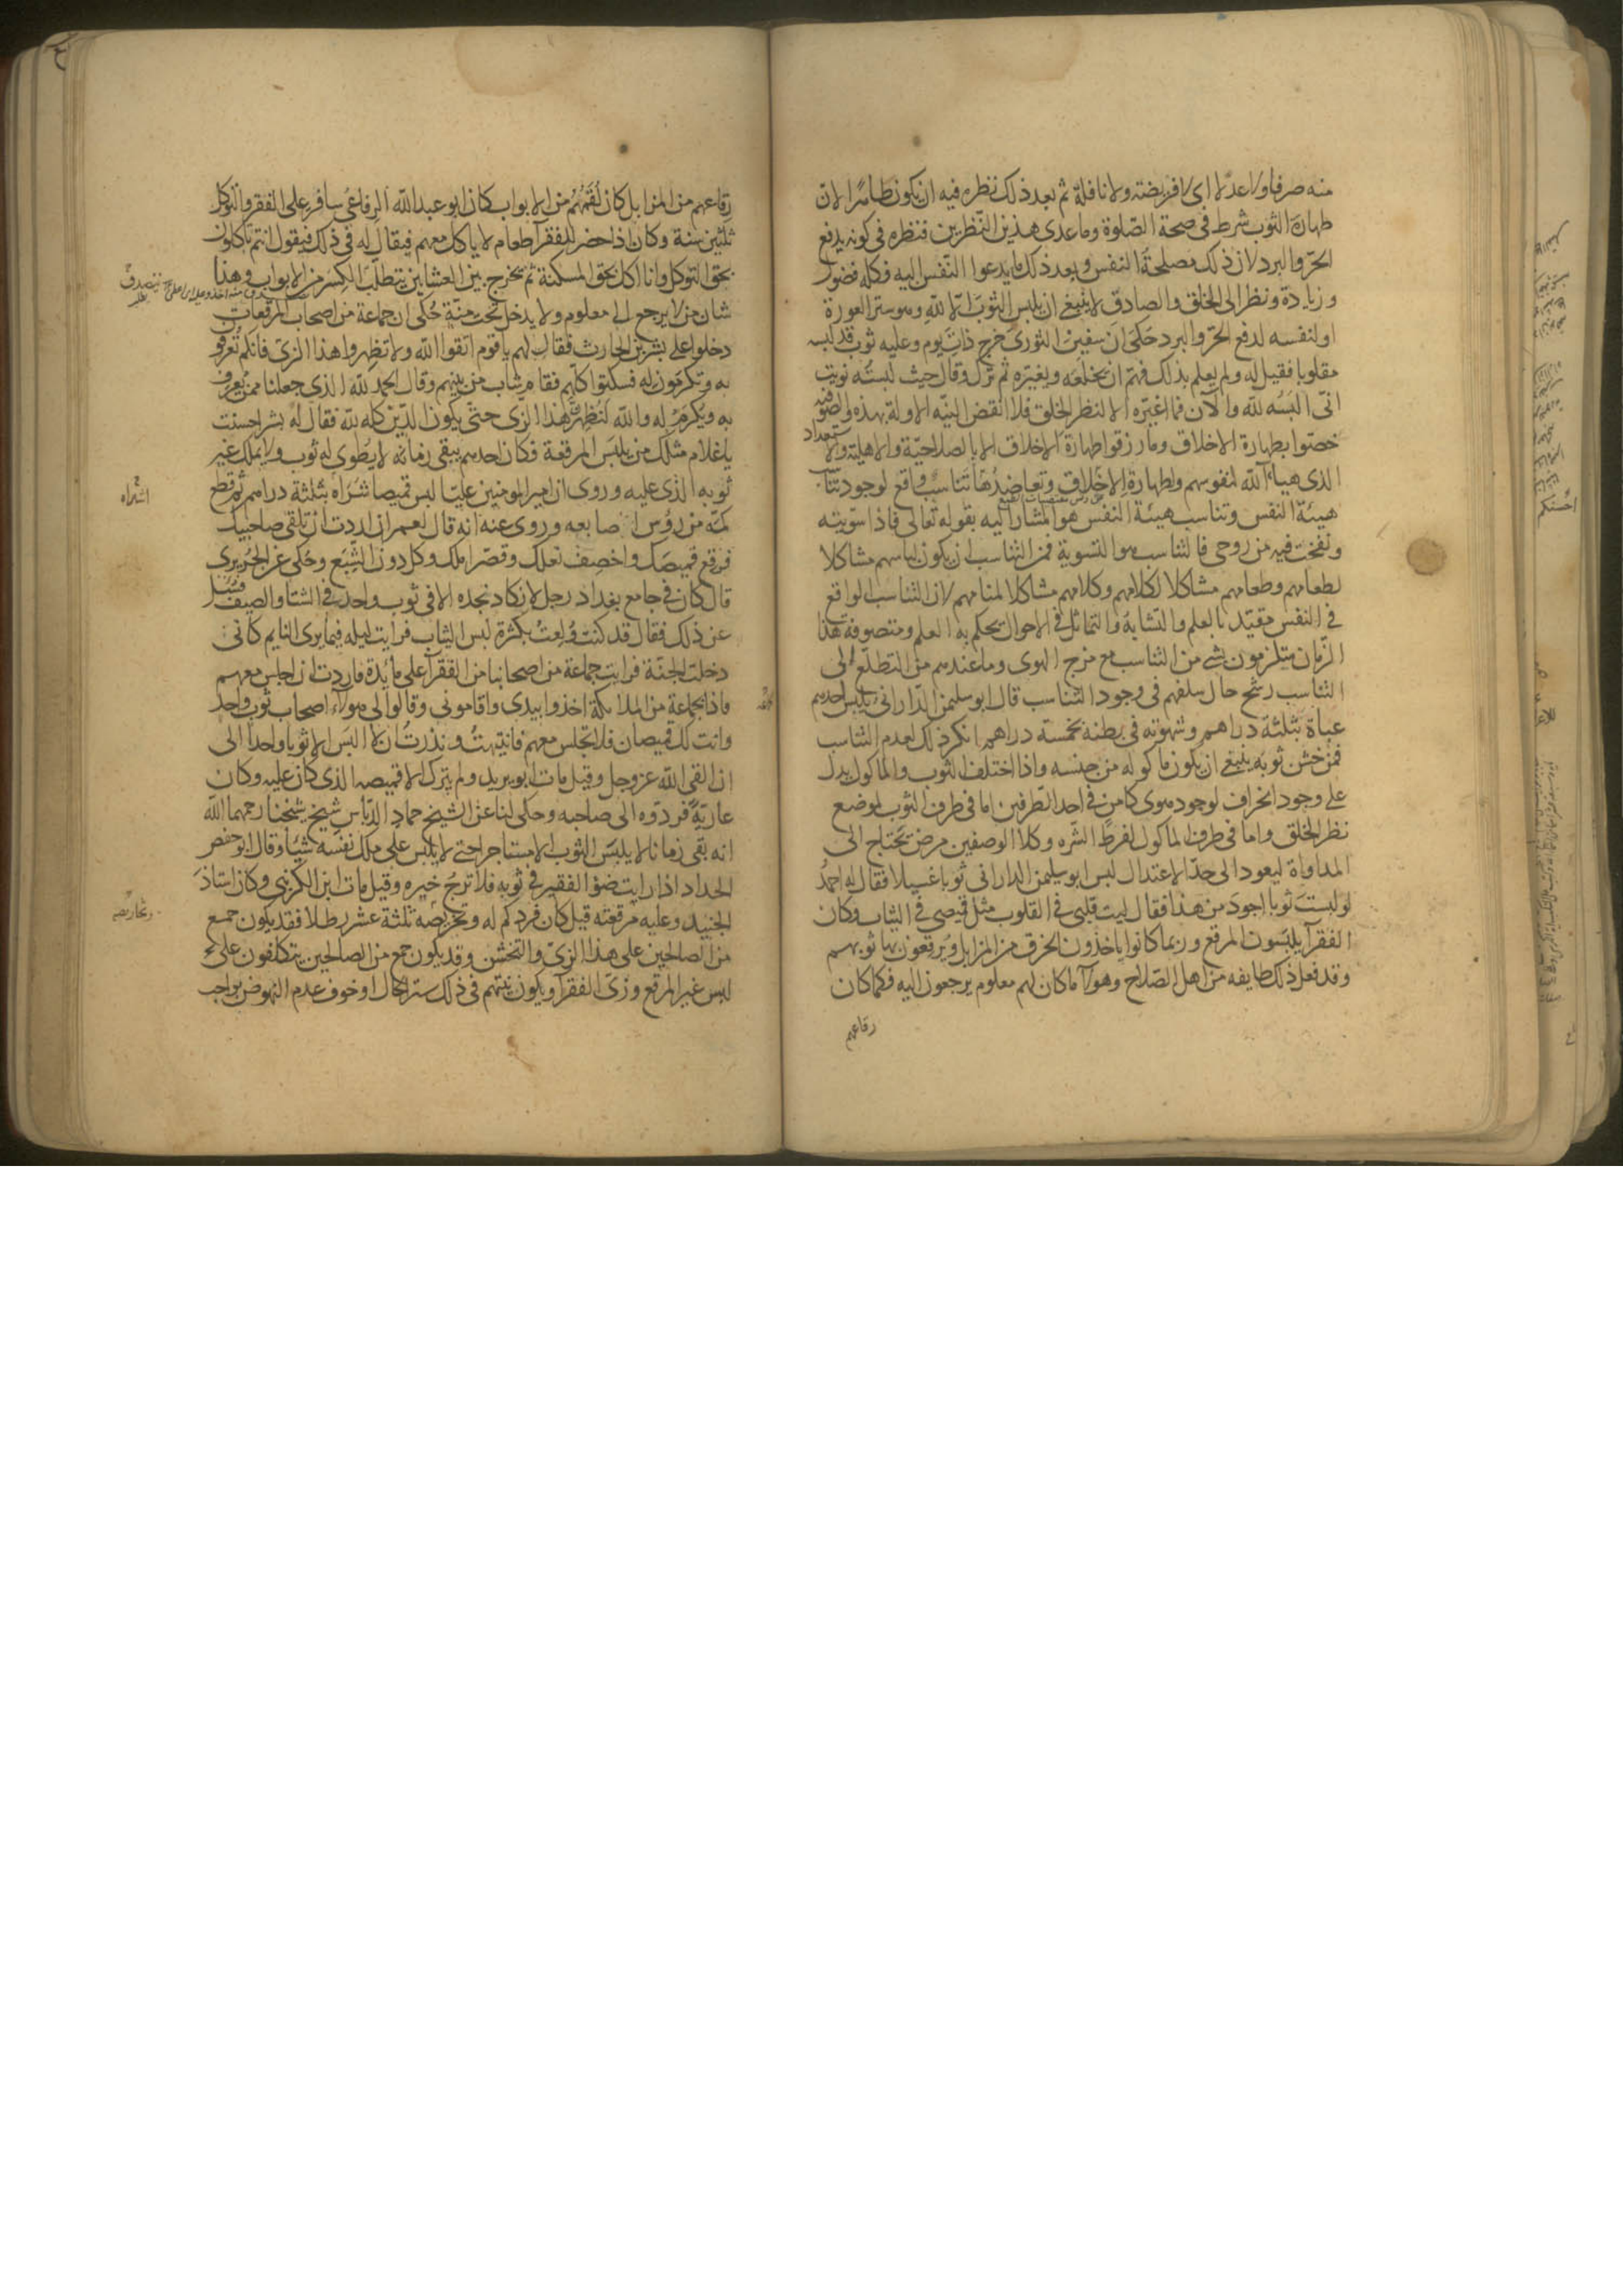 منه صرفا ولا عدلا اى لا فريضة ولا نافلة ثم بعد ذلك نظره فيه ان يكون طاهرا لانّ
طهارة الثوب شرط فى صحة الصّلوة وما عدى هذين النّظرين فنظره فى كونه يدفع
الحرّ والبرد لان ذلك مصلحة النفس وبعد ذلك ما يدعوا النّفس اليه فكله فضول
وزيادة ونظر الى الخلق والصادق لا ينبغى ان يلبس الثوبَ الّا للّهِ وهو ستر العورة
او لنفسه لدفع الحرّ والبرد حُكىَ انَ سفينَ الثورىَ خرج ذاتَ يوم وعليه ثوب قد لبسه
مقلوبا فقيل له ولم يعلم بذلك فهمّ ان يخلعَه ويغيّرَه ثم تركَ وقال حيث لبستُه نويت
انّى البَسُه للّه والآن فما اغيّره الا لنظر الخلق فلا انقض النيّه الاولة بهذه والصوفية
خصّوا بطهارة الاخلاق وما رزقوا طهارة الاخلاق الا بالصلاحيّة والاهلية والاستعداد
الذى هيأه اللّه لنفوسهم ولطهارة الاخلاق وتعاضُدُها تناسبٌ واقع لوجود تناسب
هيئة النفس وتناسب هيئة النفس هو المشار اليه بقوله تعالى فاذا سوّيته
ونفخت فيه من روحى فالتناسب هو التسوية فمن التناسب ان يكون لباسهم مشاكلا
لطعامهم وطعامهم مشاكلا لكلامهم وكلامهم مشاكلا لمنامهم لان التناسب الواقع
فى النفس مقيّد بالعلم والتشابهُ والتماثل فى الاحوال يحكم به العلم ومتصوفة هذا
الزّمان ملتزمون بشئ من التناسب مع مزج الهوى وما عندهم من التطلّع الى
التناسب رشح حال سلفهم فى وجود التناسب قال ابو سليمن الدّارانى يلبس احدهم
عباة بثلثة دراهم وشهوته فى بطنه بخمسة دراهم انكر ذلك لعدم التناسب
فمن خشن ثوبه ينبغى ان يكون ماكوله من جنسه واذا اختلف الثوب والماكول يدل
على وجود انحراف لوجود هوى كامن فى احد الطّرفين اما فى طرف الثوب لموضع
نظر الخلق واما فى طرف الماكول لفرط الشّره وكلا الوصفين مرض يحتاج الى
المداواة ليعود الى حدّ الاعتدال لبس ابو سليمن الدارانى ثوبا غسيلا فقال له احمدُ
لو لبستَ ثوبا اجودَ من هذا فقال ليت قلبى فى القلوب مثل قميصى فى الثياب وكان
الفقرآ يلبسون المرقع وربما كانوا ياخذون الخرق من المزابل ويرقعون بها ثوبهم
وقد فعل ذلك طايفه من اهل الصّلاح وهولآ ما كان لهم معلوم يرجعون اليه فكما كان
رقاعهم
رِقاعهم من المزابل كان لُقَمُهُم من الابواب كان ابو عبد اللّه الرفاعى سافر على الفقر والتوكل
ثلثين سنة وكان اذا حضر للفقرآ طعام لا ياكل معهم فيقال له فى ذلك فيقول انتم تاكلون
بحق التوكل وانا اكل بحق المسكنة ثم يخرج بين العشاين يتطلّب الكِسَر من الابواب وهذا
شان من لا يرجع الى معلوم ولا يدخل تحت منّة حُكى ان جماعة من اصحاب المرقعات
دخلوا على بشر بن الحارث فقال لهم يا قوم اتقوا اللّه ولا تظهروا هذا الزىّ فانكم تُعرفون
به وتكرمون له فسكتوا كلّهم فقام شاب من بينهم وقال الحمد للّه الذى جعلنا ممن يُعرف
به ويكرم له واللّه لنُظهرنّ هذا الزّى حتى يكون الدّين كله للّه فقال له بشر احسنت
يا غلام مثلك من يلبَس المرقعة فكان احدهم يبقى زمانه لا يُطوى له ثوب ولا يملك غير
ثوبه الذى عليه وروى ان امير المومنين عليّا لبس قميصا شَراه بثلثة دراهم ثم قطع
اشتراه
كمّه من رؤس اصابعه وروى عنه انه قال لعمر ان اردت ان تلقى صاحبيك
فرقع قميصَك واخصف نعلك وقصّر املك وكل دون الشِّبَع وحُكى عن الجُريرى
قال كان فى جامع بغداد رجل لا تكاد تجده الا فى ثوب واحد فى الشتا والصيف فسُئل
عن ذلك فقال قد كنت وُلِعتُ بكثرة لبس الثياب فرايت ليله فيما يرى النايم كانى
دخلت الجنّة فرايت جماعة من اصحابنا من الفقرآ على مائدة فاردت ان اجلس معهم
فاذا بجماعة من الملائكة اخذوا بيدى واقامونى وقالوا لى هولآء اصحاب ثوب واحد
وانت لك قميصان فلا تجلس معهم فانتبهتُ ونذرتُ ان لا البَس الا ثوبا واحدا الى
ان القى اللّه عز وجل وقيل مات ابو يزيد ولم يترك الا قميصه الذى كان عليه وكان
عاريةً فردّوه الى صاحبه وحكى لنا عن الشيخ حمادٍ الدبّاس شيخ شيخنا رحمهما اللّه
انه بقى زمانا لا يلبَس الثوب الا مستاجرا حتى لا يلبس على ملك نفسه شيئا وقال ابو حفص
الحداد اذا رايت ضوٴ الفقير فى ثوبه فلا ترجُ خيره وقيل مات ابن الكرنبى وكان استاذَ
الجنيد وعليه مرقعته قيل كان فرد كم له وتخريصه ثلثة عشر رطلا فقد يكون جمع
وتخاريصه
من الصالحين على هذا الزىّ والتخشن وقد يكون جمع من الصالحين يتكلفون على
لبس غير المرقع وزىّ الفقرآ ويكون نيتهم فى ذلك ستر الحال او خوف عدم النهوض بواجب